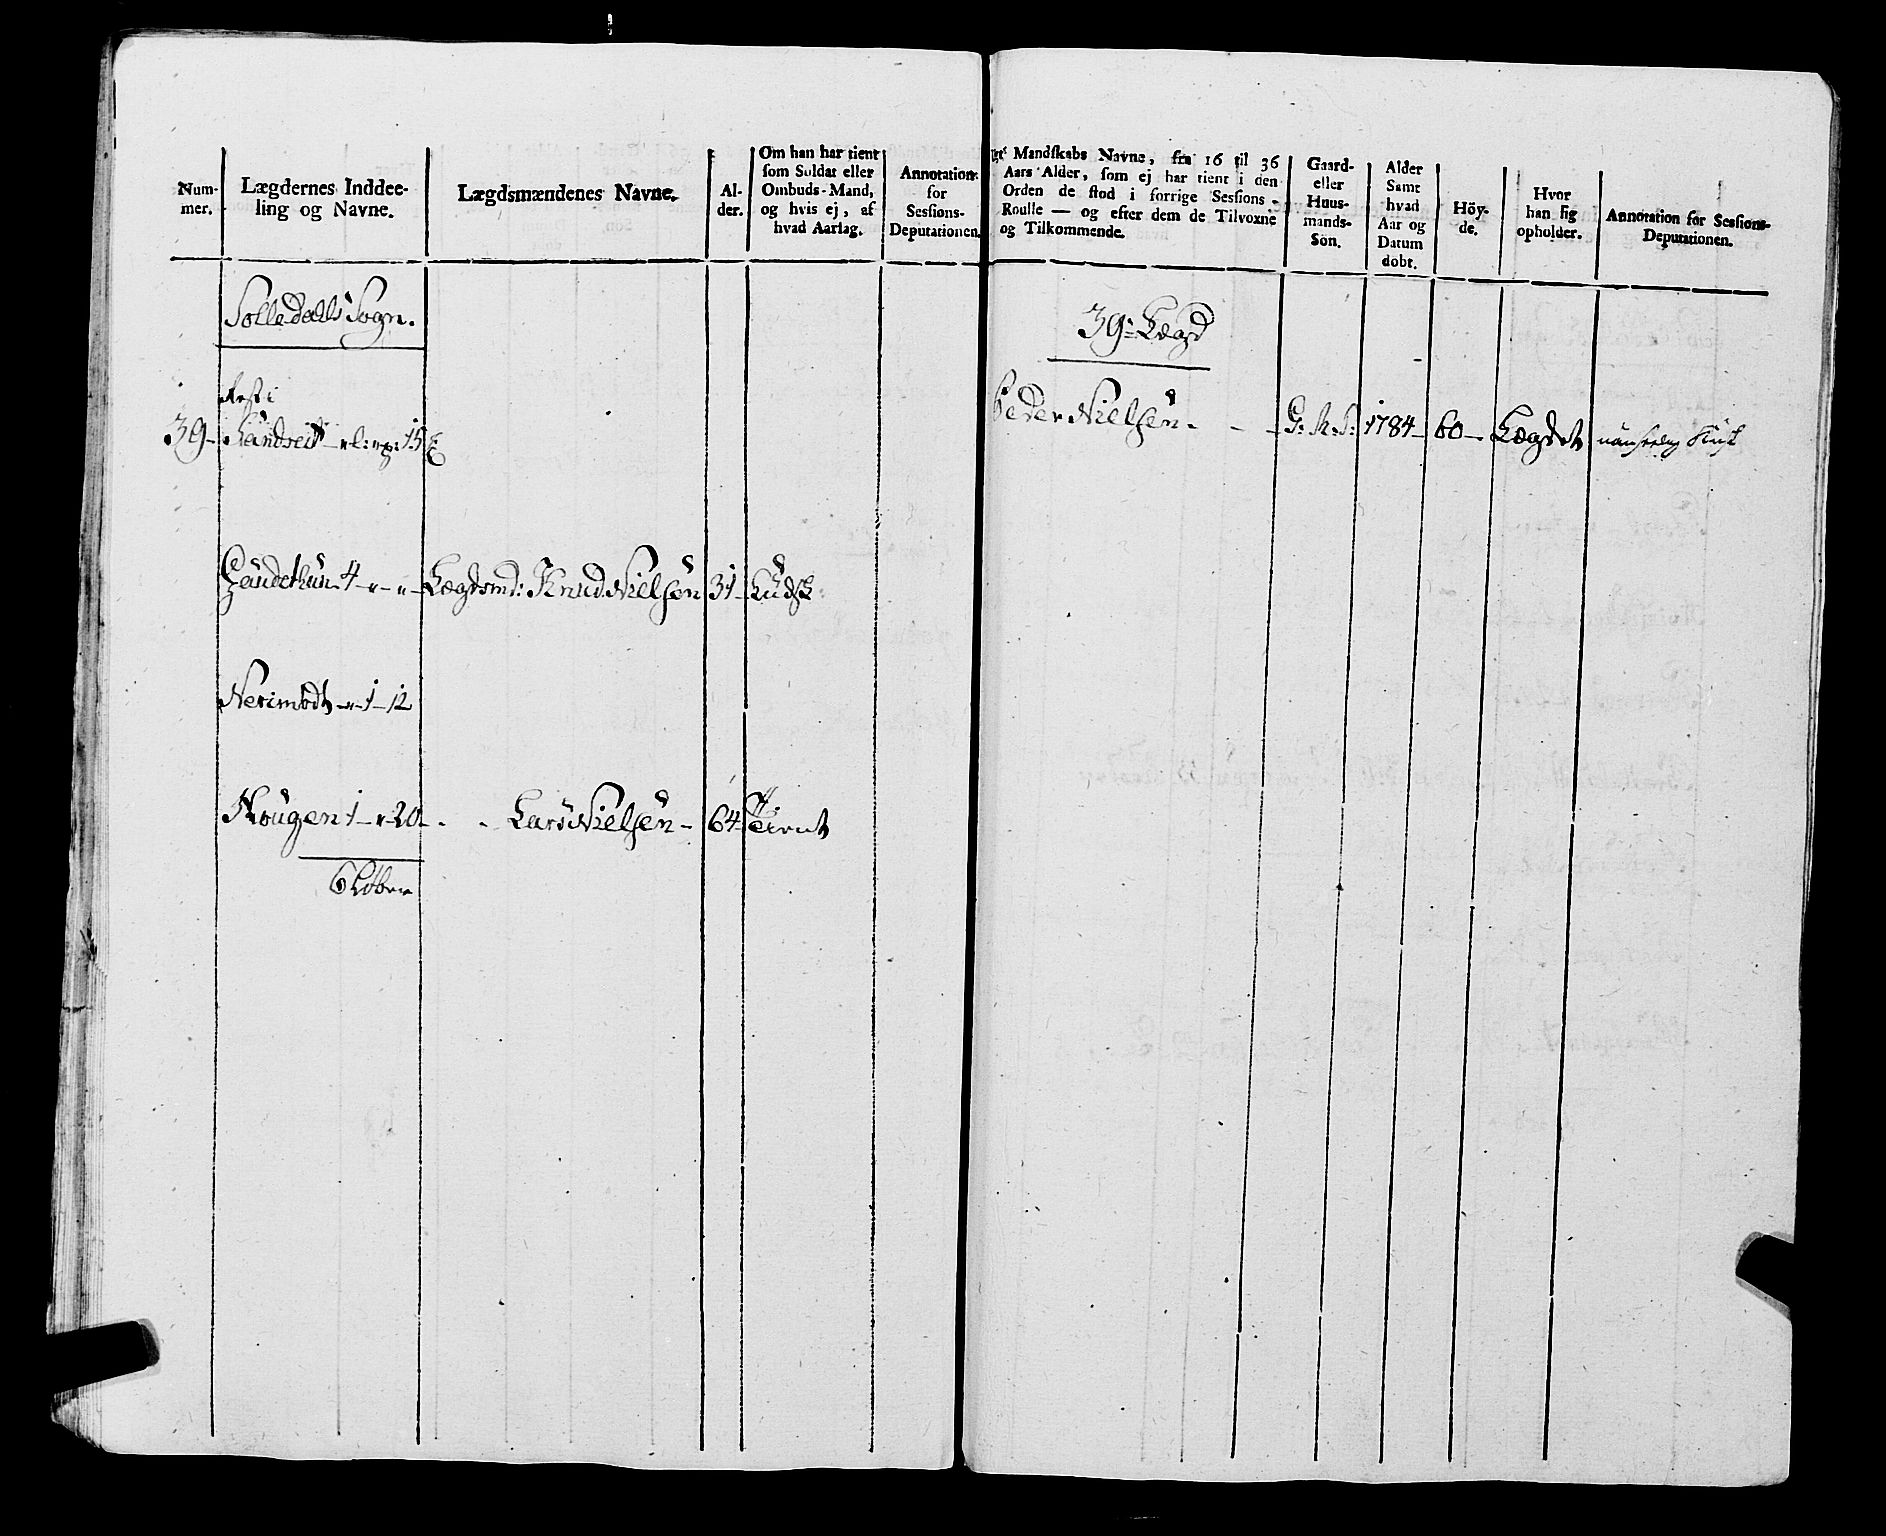 Num-
mer.
Lægdernes Inddee-
ling og Navne.
Lægdsmændenes Navne.
Al-
der.
Om han har tient
som Soldat eller
Ombuds-Mand,
og hvis ej, af
hvad Aarsag.
Annotation
for
Sessions-
Deputationen.
Mandskabs Navne, fra 16 til 36
Aars Alder, som ej har tient i den
Orden de stod i forrige Sessions-
Roulle — og efter dem de Tilvoxne
og Tilkommende.
Gaard-
eller
Huus-
mands-
Søn.
Alder
Samt
hvad
Aar og
Datum
døbt.
Höy-
de.
Hvor
han sig
opholder.
Annotation for Sessions-
Deputationen.
Solledahls Sogn.
39te Lægd
Rest i
39 - 15
Peder Nielsen - - - G: K: S: 1784 - 60 - Lægdet
4 - „ - „ - Lægdsmd: Knud Nielsen 31 -
„ - 1 - 12
Hougen 1 - „ - 20 - - - Lars Nielsen - 64 - tient
6 Løber